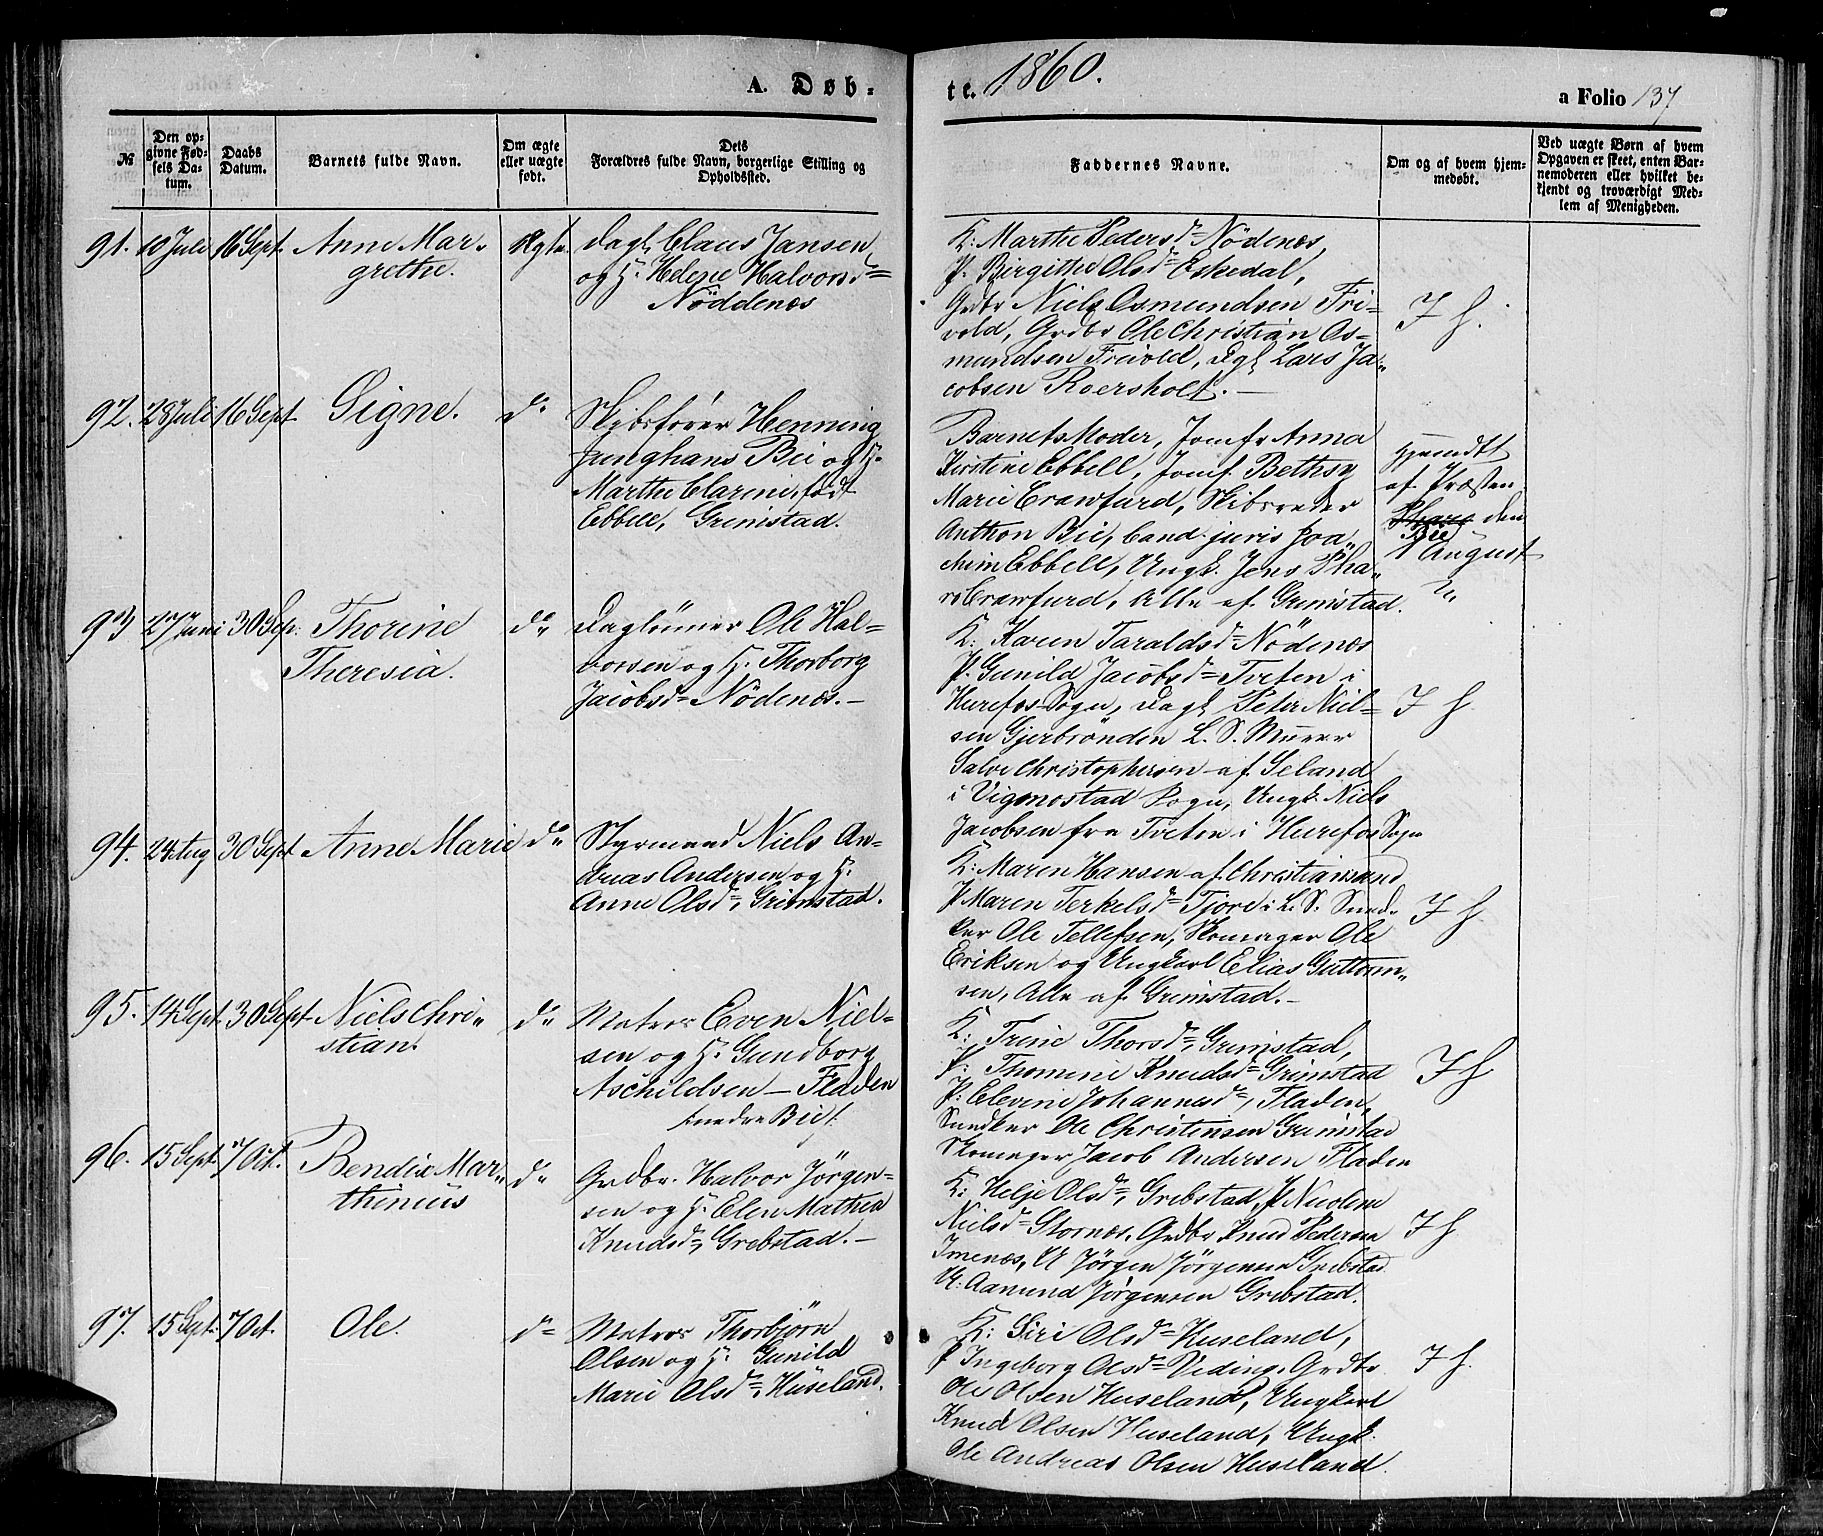 A. Døb-
te. 1860.
a Folio 137
№
Den op-
givne Fød-
sels Da-
tum.
Daabs
Datum.
Barnets fulde Navn.
Om ægte
eller uægte
født.
Dets
Forældres fulde Navn, borgerlige Stilling og
Opholdssted.
Faddernes Navne.
Om og af hvem hjem-
medøbt.
Ved uægte Børn af hvem
Opgaven er skeet, enten Bar-
nemoderen eller hvilket be-
kjendt og troværdigt Med-
lem af Menigheden.
91. 10 Juli 16 Sept. Anne Mar-
grethe.
Ægte.
Dagl. Claus Jansen
og H. Helene Halvorsd.
Nöddenes
K: Marthe Pedersd. Nödenes,
P. Birgithe Olsd. Eskedal,
Grdbr Niels Osmundsen Fri-
vold, Grdbr Ole Christian Os-
mundsen Frivold, Dgl Lars Ja-
cobsen Roersholt. —
J H.
92. 28 Juli 16 Sept Signe.
do
Skibsfører Henning
Junghans Bie og H.
Marthe Clarine, født
Ebbell, Grimstad.
Barnets Moder, Jomfr Anna
Kirstine Ebbell, Jomf. Bethsy
Marie Crawfurd, Skibsreder
Anthon Bie, Cand. juris Joa-
chim Ebbell, Ungk. Jens Pha-
ro Crawfurd, Alle af Grimstad.
hjemdt
af Præsten
Bie den
1 August
93 27 Juni 30 Sep. Thorine
Theresia.
do
Daglönner Ole Hal-
vorsen og H. Thorborg
Jacobsd. Nödenes. —
K: Karen Taraldsd. Nödenes
P. Gunild Jacobsd. Tveten i
Herefos Sogn, Dagl Peter Niel-
sen Gjerbrönden L. S. Murer
Salve Christophersen af Seland
i Vigmostad Sogn, Ungk. Niels
Jacobsen fra Tveten i Herefos Sogn
J H.
94. 24 Aug 30 Sept Anne Marie
do
Styrmand Niels An-
dreas Andersen og H.
Anne Olsd., Grimstad.
K: Maren Hansen af Christianssand
P Maren Terkelsd. Fjore i L. S. Sned-
ker Ole Tellefsen, Skomager Ole
Eriksen og Ungkarl Elias Guttorm-
sen, Alle af Grimstad. —
J H.
95. 14 Sept. 30 Sept Niels Chri-
stian.
do
Matros Even Niel-
sen og H. Gundborg
Aschildsen — Fladen
K: Trine Thorsd., Grimstad,
P: Thomine Knudsd. Grimstad
P: Elevine Johannesd., Fladen,
Snedker Ole Christensen Grimstad
Skomager Jacob Andersen Fladen
J H
96. 15 Sept. 7 Oct. Bendix Mar-
thinius
do
Grdbr. Halvor Jörgen-
sen og H. Elen Mathea
Knudsd., Grebstad. —
K: Helje Olsd., Grebstad, P Nicoline
Nielsd. Stornes, Grdbr Knud Pedersen
Imenes, U Jörgen Jörgensen Grebstad
U: Aamund Jörgensen Grebstad.
J H.
97. 15 Sept. 7 Oct. Ole.
do
Matros Thorbjörn
Olsen og H. Gunild
Marie Olsd., Huseland.
K: Siri Olsd. Huseland,
P Ingeborg Olsd. Veding, Grdbr
Ole Olsen Huseland, Ungkarl
Knud Olsen Huseland, Ungk.
Ole Andreas Olsen Huseland.
J H.